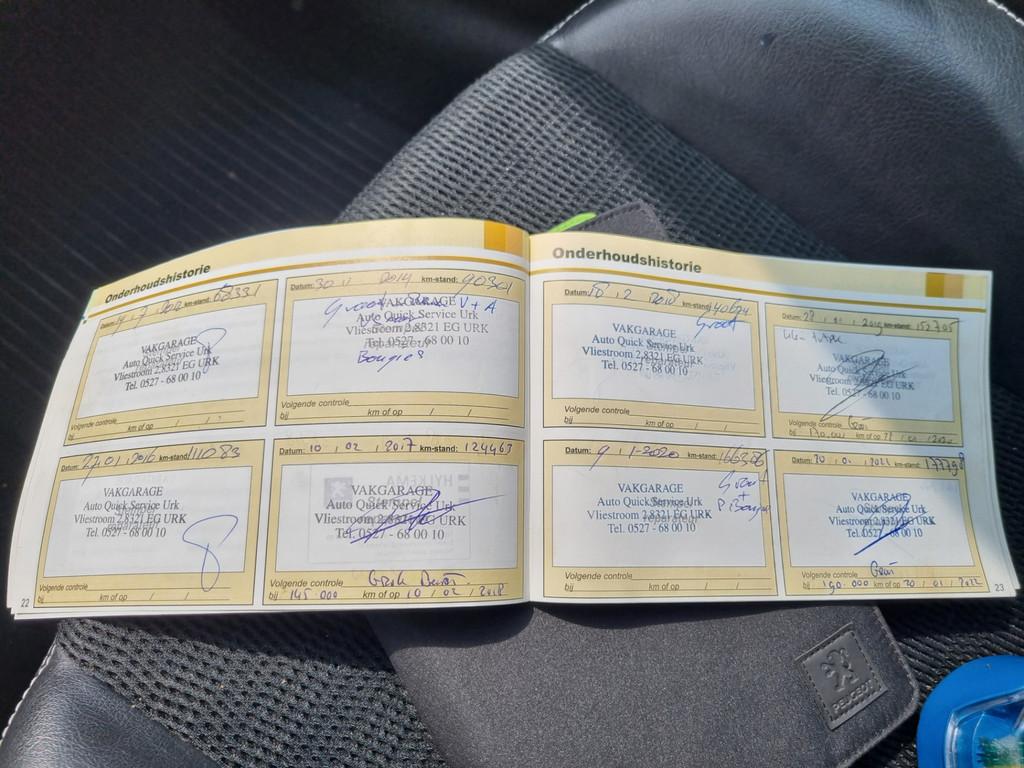 Onderhoudshistorie
Datum: 7 km-stand:
VAKGARAGE
Auto Quick Service Urk
Vliestroom 2,8321 EG URK
Tel. 0527 - 68 00 10
Volgende controle
bij km of op / /
Datum: 30 11 2014 km-stand: 90301
Groot V + A
VAKGARAGE
Auto Quick Service Urk
Vliestroom 2,8321 EG URK
Tel. 0527 - 68 00 10
Bougies
Volgende controle
bij km of op / /
Datum: 27 01 2016 km-stand:
VAKGARAGE
Auto Quick Service Urk
Vliestroom 2,8321 EG URK
Tel. 0527 - 68 00 10
Volgende controle
bij km of op / /
Datum: 10 , 02 , 2017 km-stand: 124463
VAKGARAGE
Auto Quick Service Urk
Vliestroom 2,8321 EG URK
Tel. 0527 - 68 00 10
Volgende controle
bij 145.000 km of op 10 / 02 / 2018
22
Onderhoudshistorie
Datum: 2 km-stand:
Groot
VAKGARAGE
Auto Quick Service Urk
Vliestroom 2,8321 EG URK
Tel. 0527 - 68 00 10
Volgende controle
bij km of op / /
Datum: 2019 km-stand:
VAKGARAGE
Auto Quick Service Urk
Vliestroom 2,8321 EG URK
Tel. 0527 - 68 00 10
Volgende controle
bij km of op
Datum: 9 , 1-2020 km-stand:
Groot
+
VAKGARAGE
Auto Quick Service Urk
Vliestroom 2,8321 EG URK
Tel. 0527 - 68 00 10
Volgende controle
bij km of op / /
Datum: 2021 km-stand:
VAKGARAGE
Auto Quick Service Urk
Vliestroom 2,8321 EG URK
Tel. 0527 - 68 00 10
Volgende controle
bij 190.000 km of op 20 / 01 / 2022
23
PEUGEOT